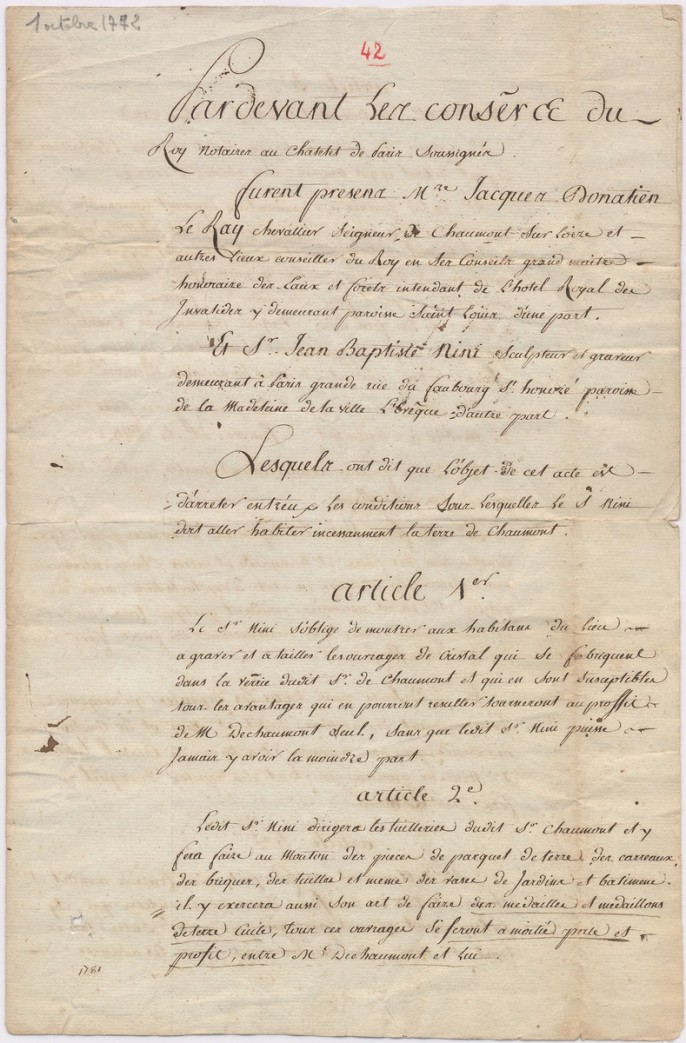 1 octobre 1772
42
Pardevant Les consërs du
Roy Notaires au Chatelet de Paris Soussignés.
furent presens Mre Jacques Donatien
Le Ray chevallier Seigneur de Chaumont Sur Loire et
autres Lieux conseiller du Roy en Ses Conseils grand maitre
honoraire des Eaux et forets intendant de L'hotel Royal des
Invalides y demeurant paroisse Saint Loüis d'une part.
Et Sr. Jean Baptiste Nini Sculpteur et graveur
demeurant à Paris grande rüe du faubourg St. honoré paroisse
de la Madeleine de la ville L'Evêque d'autre part.
Lesquels ont dit que L'objet de cet acte est
d'arreter entr'eux Les conditions Sous Lesquelles Le S. Nini
doit aller habiter incessamment la terre de Chaumont.
article 1er.
Le Sr. Nini S'oblige de montrer aux habitans du lieu
a graver et à tailler les ouvrages de Cristal qui se fabriquent
dans la verrie dudit Sr. de Chaumont et qui en sont susceptibles
tous les avantages qui en pourront resulter tourneront au proffit
de M Dechaumont seul, sans que ledit Sr. Nini puisse
Jamais y avoir la moindre part
article 2e.
Ledit Sr. Nini dirigera les tuilleries dudit Sr. Chaumont et y
fera faire au Mouton des pieces de parquet de terre, des carreaux,
des briques, des tuilles et meme des vases de Jardins et batimens.
il y exercera aussi son art de faire des medailles et medaillons
de terre Cuite, tous ces ouvrages se feront à moitié perte et
profit, entre Mr Dechaumont et Lui.
1781